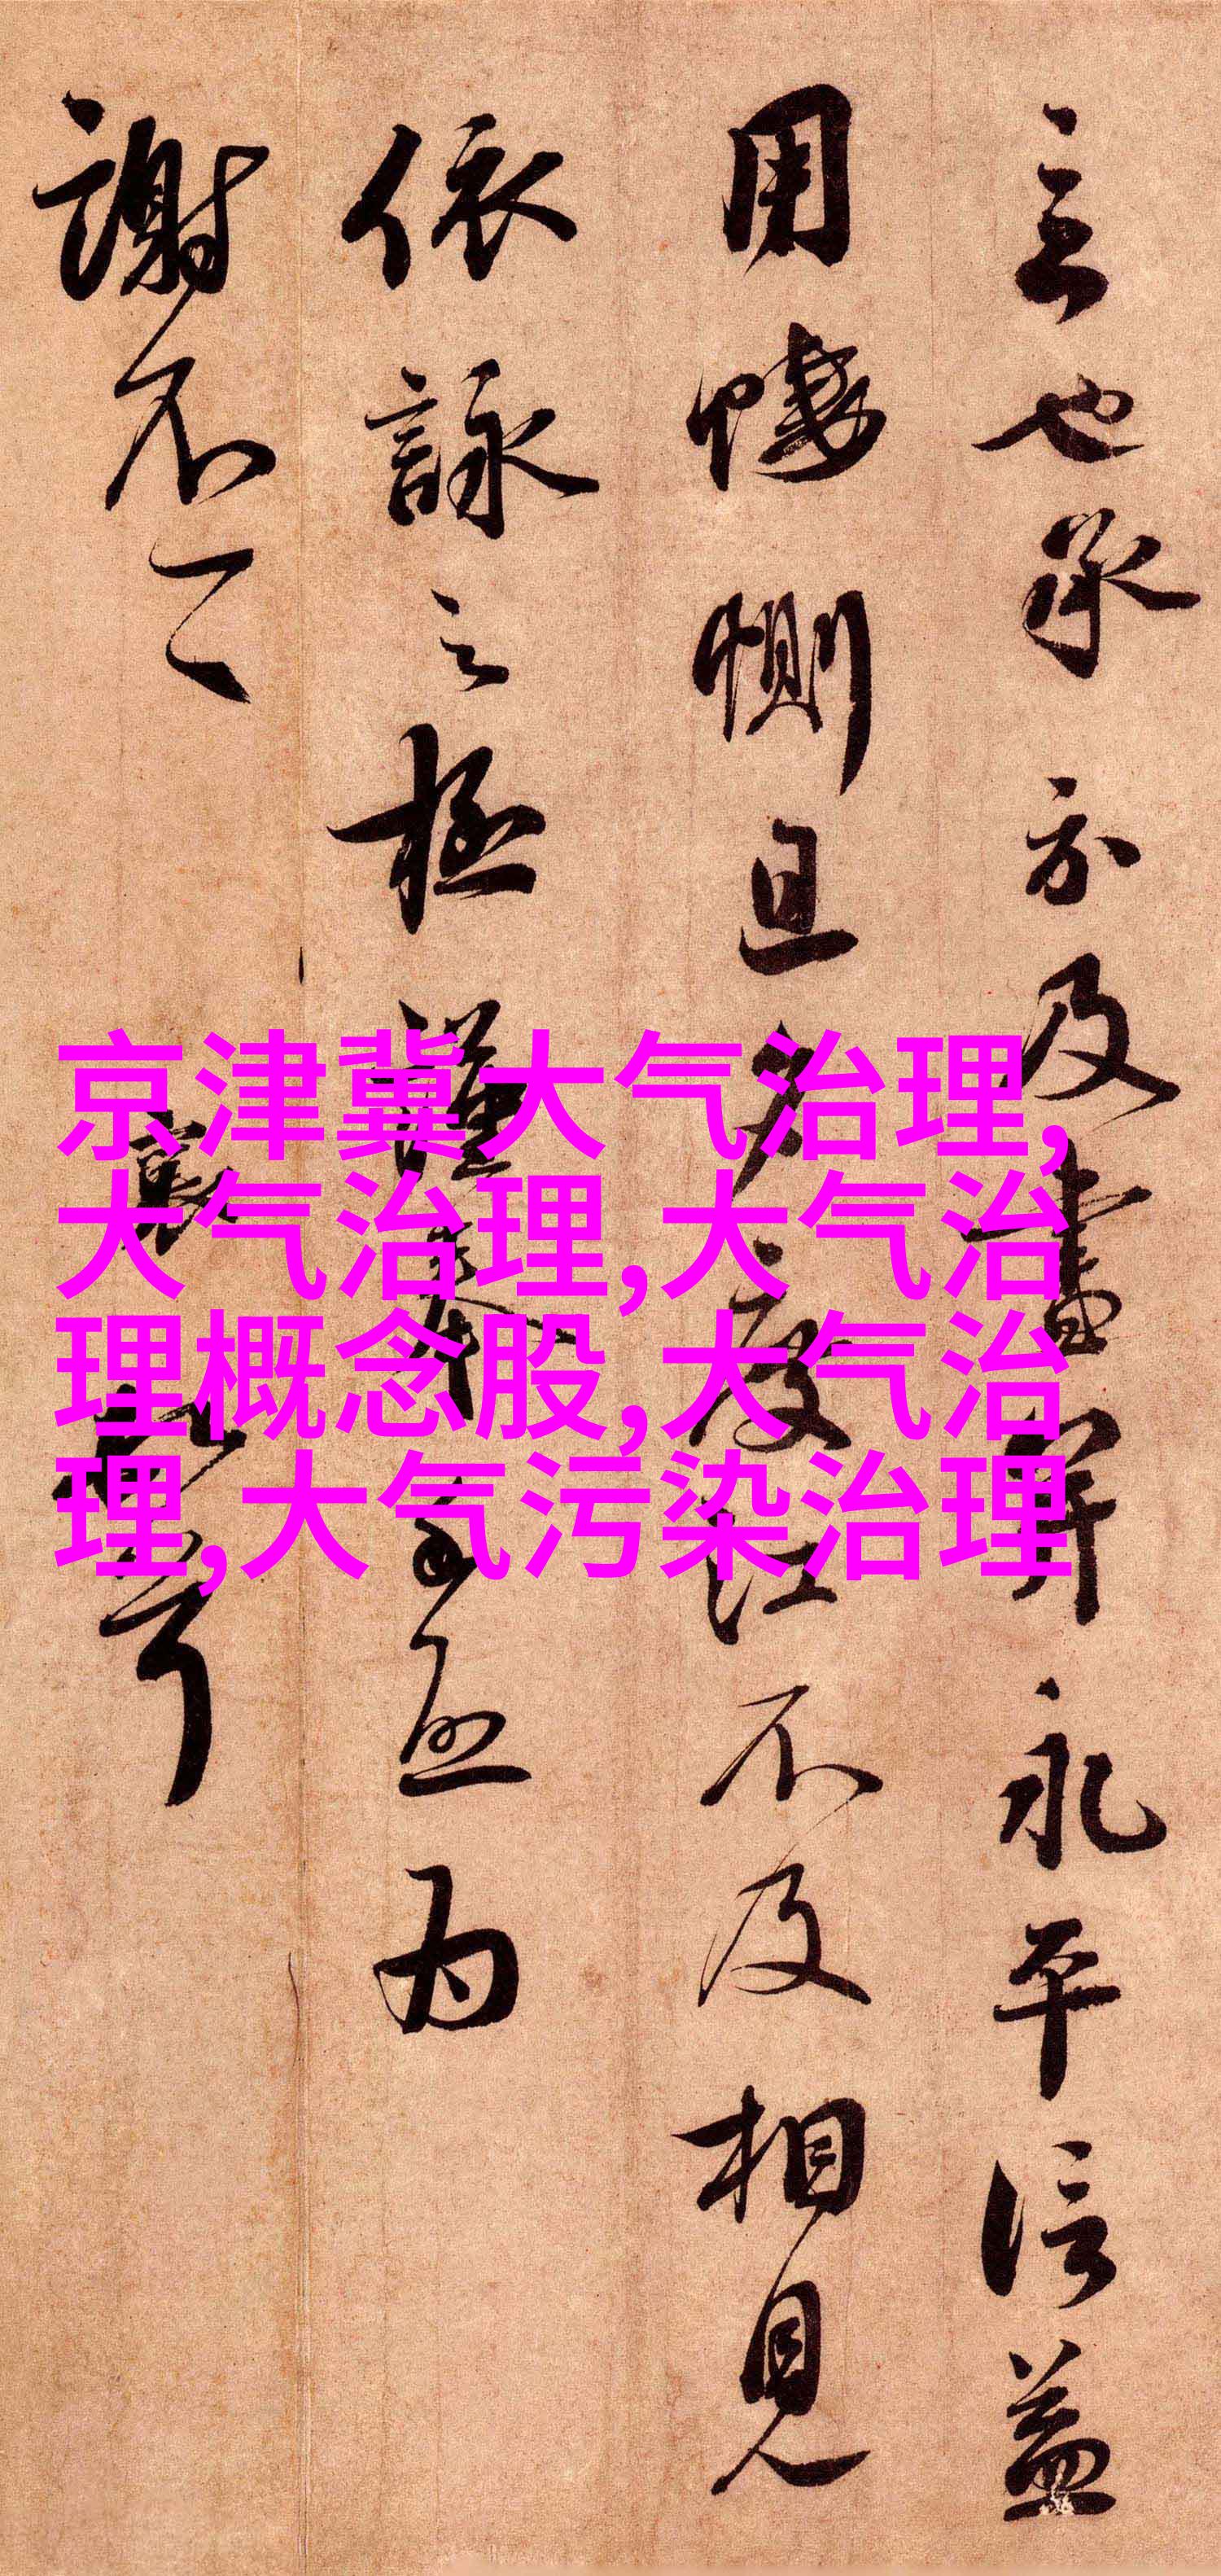 主也承示及畫屏永平信益
用悽惻且
不及相見
依詠之極謹奉
為
謝不一
京津冀大气治理,
大气治理,大气治
理概念股,大气治
理,大气污染治理